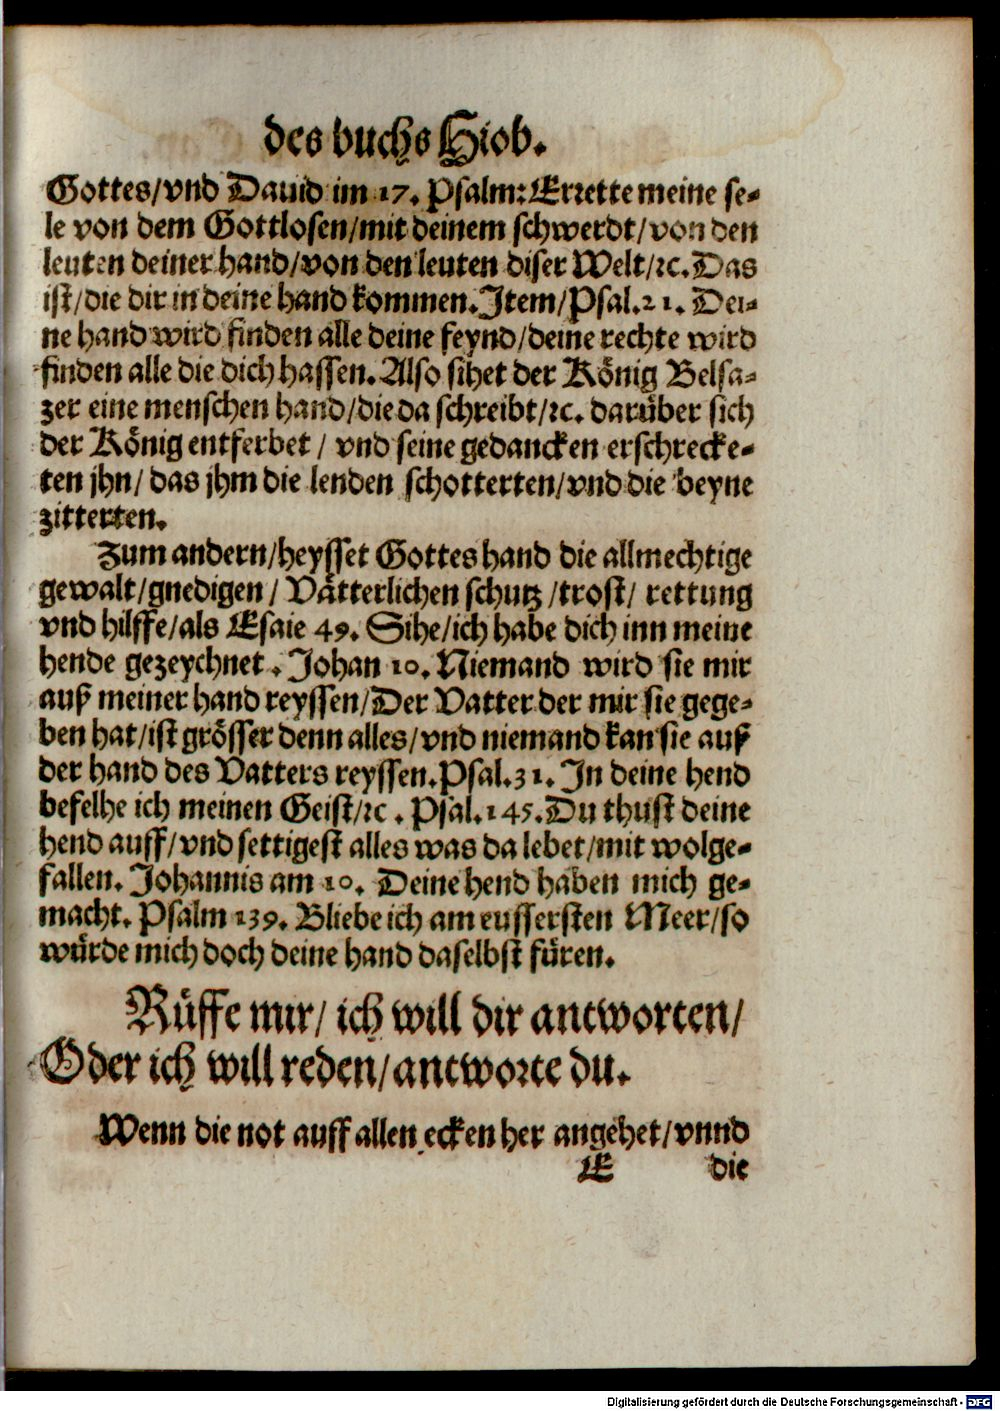 des buchs Hiob.
Gottes/vnd Dauid im 17. Psalm: Errette meine se-
le von dem Gottlosen/mit deinem schwerdt/von den
leuten deiner hand/von den leuten diser Welt/ꝛc. Das
ist/die dir in deine hand kommen. Item/Psal. 21. Dei-
ne hand wird finden alle deine feynd/deine rechte wird
finden alle die dich hassen. Also sihet der König Belsa-
zer eine menschen hand/die da schreibt/ꝛc. darüber sich
der König entferbet / vnd seine gedancken erschrecke-
ten jhn/ das jhm die lenden schotterten/vnd die beyne
zitterten.
Zum andern/heysset Gottes hand die allmechtige
gewalt/gnedigen / Vätterlichen schutz /trost/ rettung
vnd hilffe/als Esaie 49. Sihe/ich habe dich inn meine
hende gezeychnet. Johan 10. Niemand wird sie mir
auß meiner hand reyssen/Der Vatter der mir sie gege-
ben hat/ist grösser denn alles/vnd niemand kan sie auß
der hand des Vatters reyssen. Psal. 31. In deine hend
befelhe ich meinen Geist/ꝛc. Psal. 145. Du thust deine
hend auff/vnd settigest alles was da lebet/mit wolge-
fallen. Johannis am 10. Deine hend haben mich ge-
macht. Psalm 139. Bliebe ich am eussersten Meer/so
würde mich doch deine hand daselbst füren.
Rüffe mir/ ich will dir antworten/
Oder ich will reden/antworte du.
Wenn die not auff allen ecken her angehet/vnnd
E die
Digitalisierung gefördert durch die Deutsche Forschungsgemeinschaft - DFG